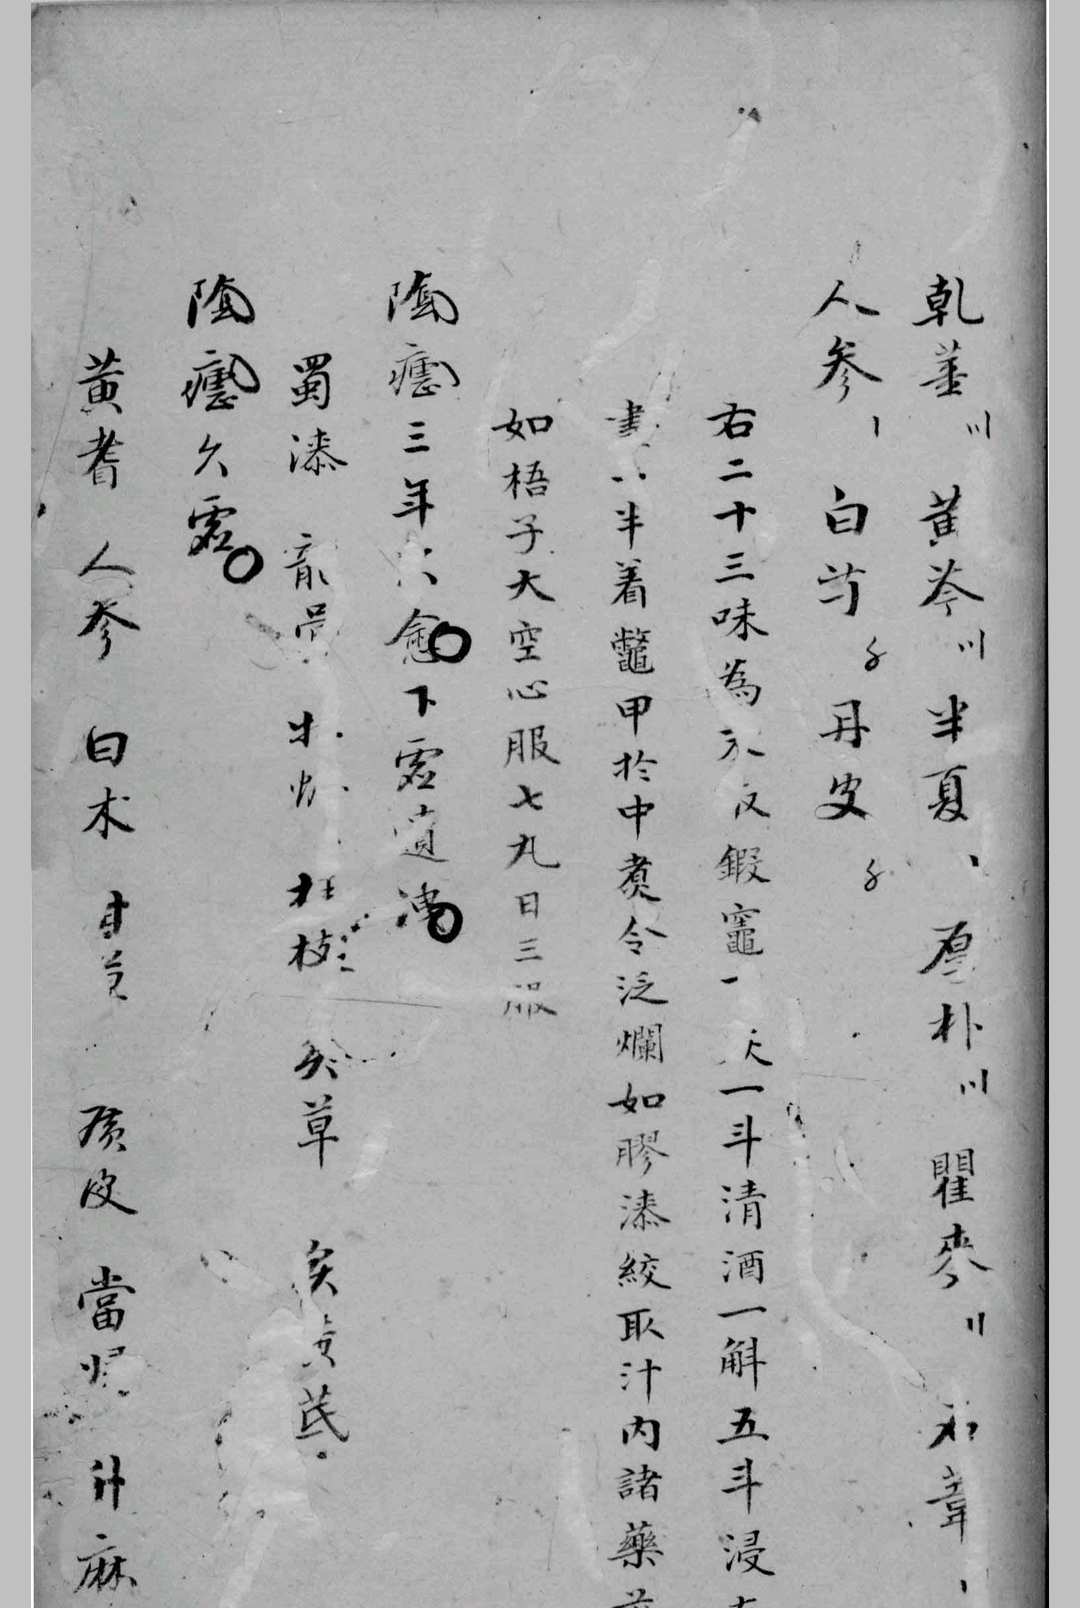 乾薑川 黄芩川 半夏、 厚朴川 瞿麥川 石韋、
人参、 白芍 丹皮
右二十三味為末取鍛竈下灰一斗清酒一斛五斗浸灰
半着鼈甲於中煑令泛爛如膠漆絞取汁内諸藥
如梧子大空心服七丸日三服
陰瘧三年不愈下虚遺
蜀漆 龍骨 牡蛎 桂枝 草 黄芪
陰瘧久虚
黄耆 人参 白术 甘草 陳皮 當歸 升麻